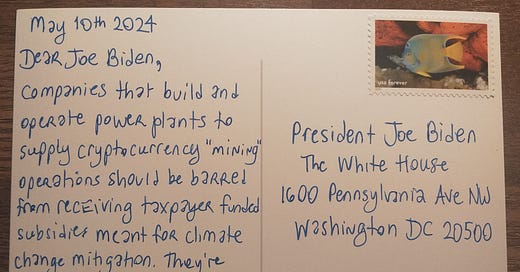 May 10th 2024
Dear Joe Biden,
Companies that build and
operate power plants to
supply cryptocurrency "mining"
operations should be barred
from receiving taxpayer funded
subsidies meant for climate
change mitigation. They're
USA forever
President Joe Biden
The White House
1600 Pennsylvania Ave NW
Washington DC 20500